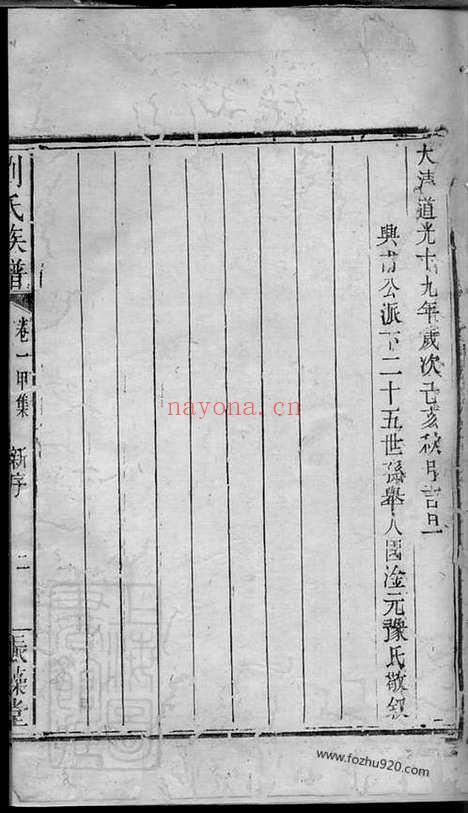 大清道光十九年歲次己亥秋月吉旦
與甫公派下二十五世孫舉人國淦元豫氏敬叙
劉氏族譜
卷一甲集
新序
二
振藻堂
nayona.cn
www.fozhu920.com